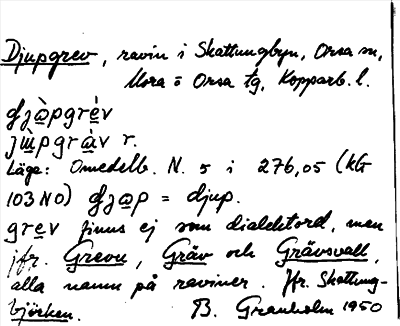 Djupgrev, ravin i Skattungbyn, Orsa sn,
Mora o Orsa tg, Kopparb. l.
ɟjὰpgrὲv
jɯ̀pgrὰv r.
Läge: Omedelb. N. 5 i 276,05 (KG
103 NO) ɟjap = djup.
grev finns ej som dialektord, men
jfr. Grevu, Gräv och Grävsvall,
alla namn på raviner. Jfr. Skattung-
björken. B. Granholm 1950